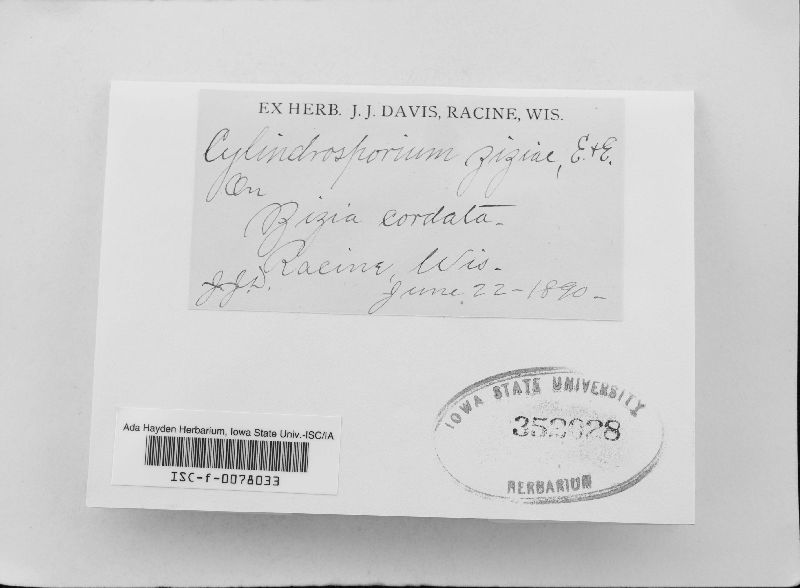 EX HERB. J. J. DAVIS, RACINE, WIS.
Cylindrosporium ziziae, E. & E.
On
Zizia cordata.
Racine, Wis.
J.J.D. June 22-1890-
IOWA STATE UNIVERSITY
HERBARIUM
Ada Hayden Herbarium, Iowa State Univ.-ISC/IA
ISC-f-0078033